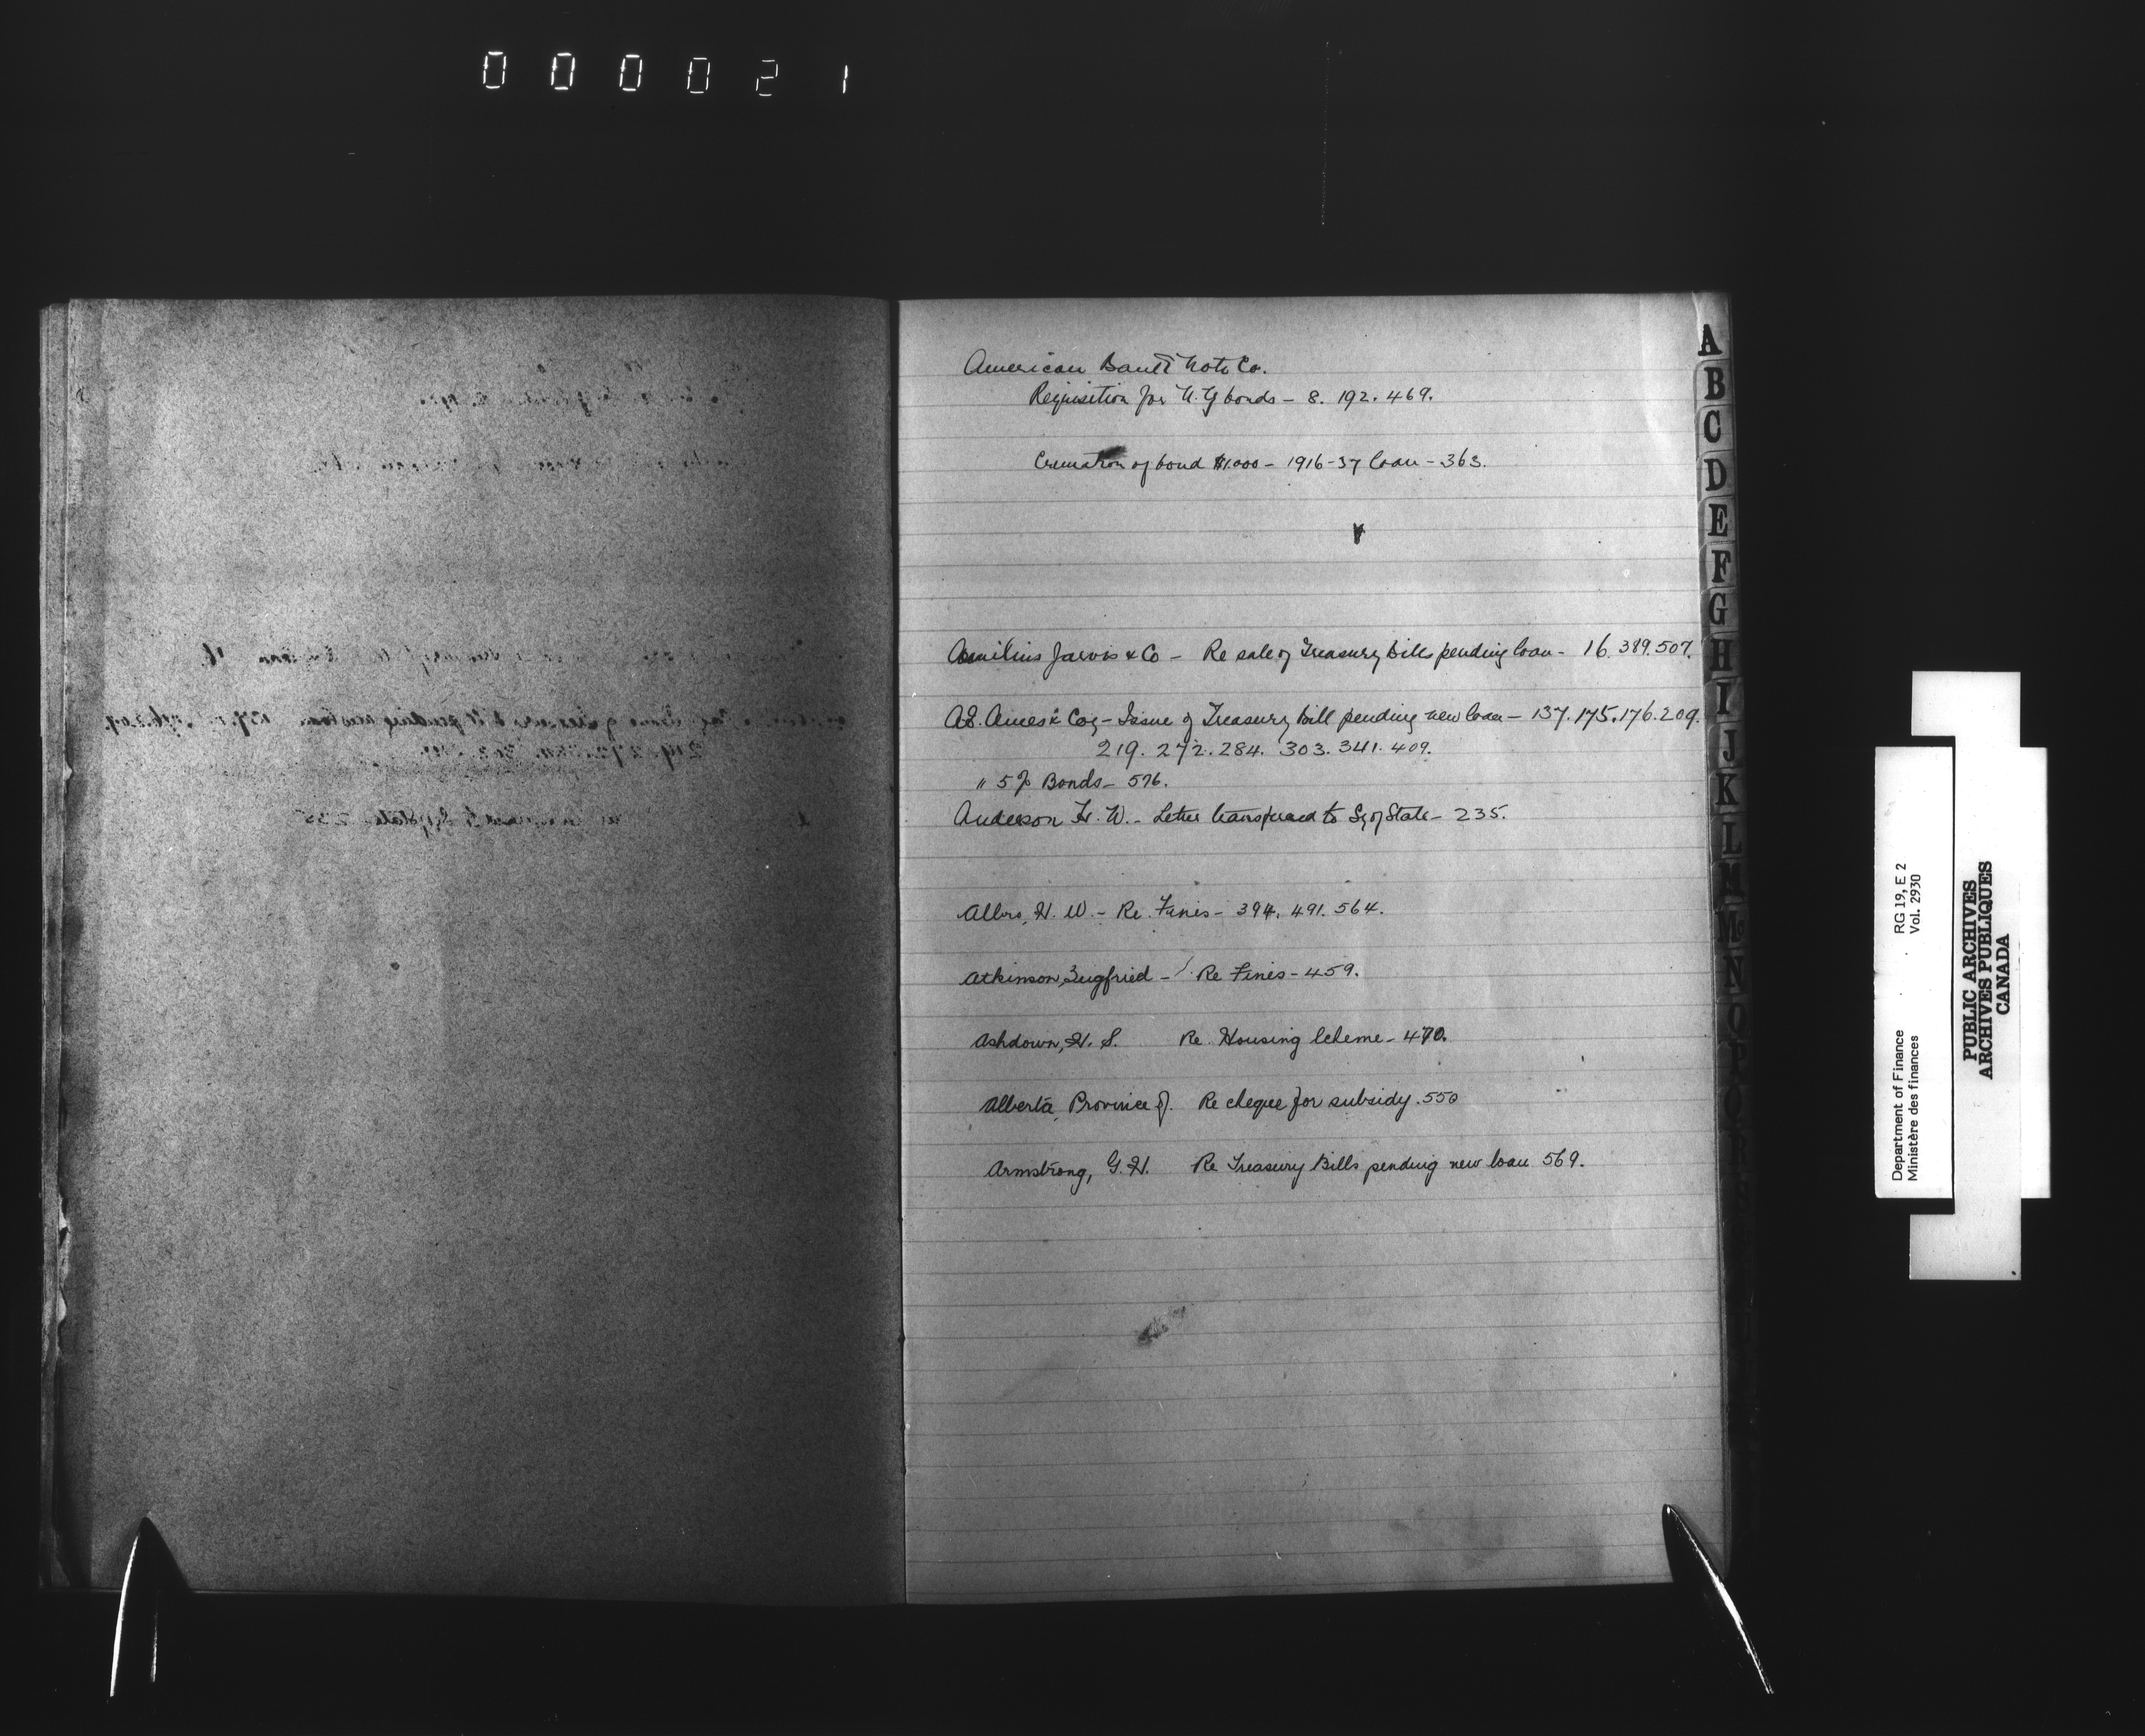 000021
American Bank Note Co.
Requisition for N.Y bonds - 8. 192. 469.
Cremation of bond $1.000 - 1916-37 loan - 363.
Aemilius Jarvis & Co - Re sale of Treasury Bills pending loan - 16. 389. 507.
A.E. Ames & Coy - Issue of Treasury bill pending new loan - 137. 175. 176. 209.
219. 272. 284. 303. 341. 409.
" 5% Bonds - 576.
Anderson H. W. - Letter transferred to Sy of State - 235.
Albro, H. W. - Re. Fines - 394. 491. 564.
Atkinson, Seigfried - Re Fines - 459.
Ashdown, H. S. Re. Housing Scheme - 470.
Alberta, Province of. Re cheque for subsidy. 550
Armstrong, G. H. Re Treasury Bills pending new loan 569.
A
B
C
D
E
F
G
H
I
J
K
L
M
Mc
N
O
P
Q
R
Department of Finance RG 19, E 2
Ministère des finances Vol. 2930
PUBLIC ARCHIVES
ARCHIVES PUBLIQUES
CANADA